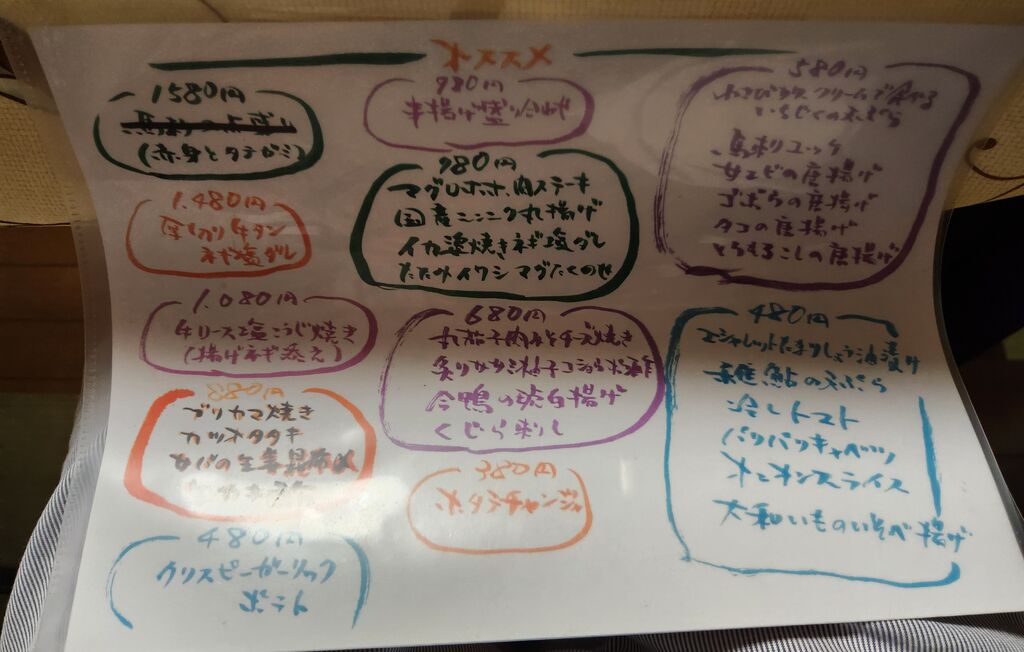 オススメ
1580円
(赤身とタテガミ)
1.480円
厚切り牛タン
ネギ塩ダレ
1.080円
塩こうじ焼き
(揚げネギ添え)
880円
ブリカマ焼き
カツオタタキ
480円
クリスピーガーリック
ポテト
980円
半揚げ
780円
マグロホホ肉ステーキ
国産ニンニク丸揚げ
イカ焼きネギ塩ダレ
たたみイワシ
680円
丸茄子肉みそチーズ焼き
炙り
合鴨の琥白揚げ
くじら刺し
380円
ホタテチャンジャ
580円
いちじくの天ぷら
馬刺ユッケ
甘エビの唐揚げ
ゴボウの唐揚げ
タコの唐揚げ
とうもろこしの唐揚げ
480円
エシャレットたまりしょう油漬け
稚鮎の天ぷら
冷しトマト
パリパリキャベツ
オニオンスライス
大和いものいそべ揚げ